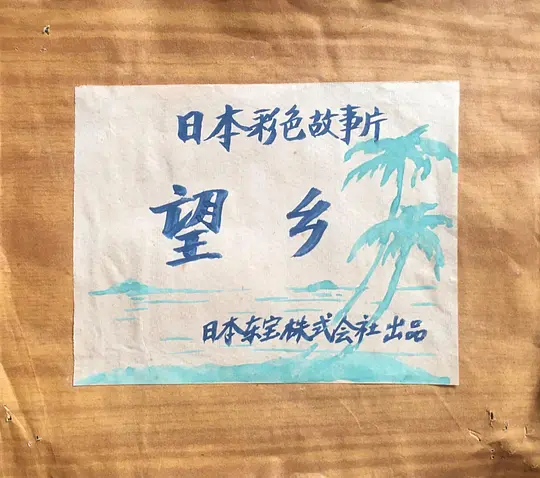 日本彩色故事片
望乡
日本东宝株式会社出品